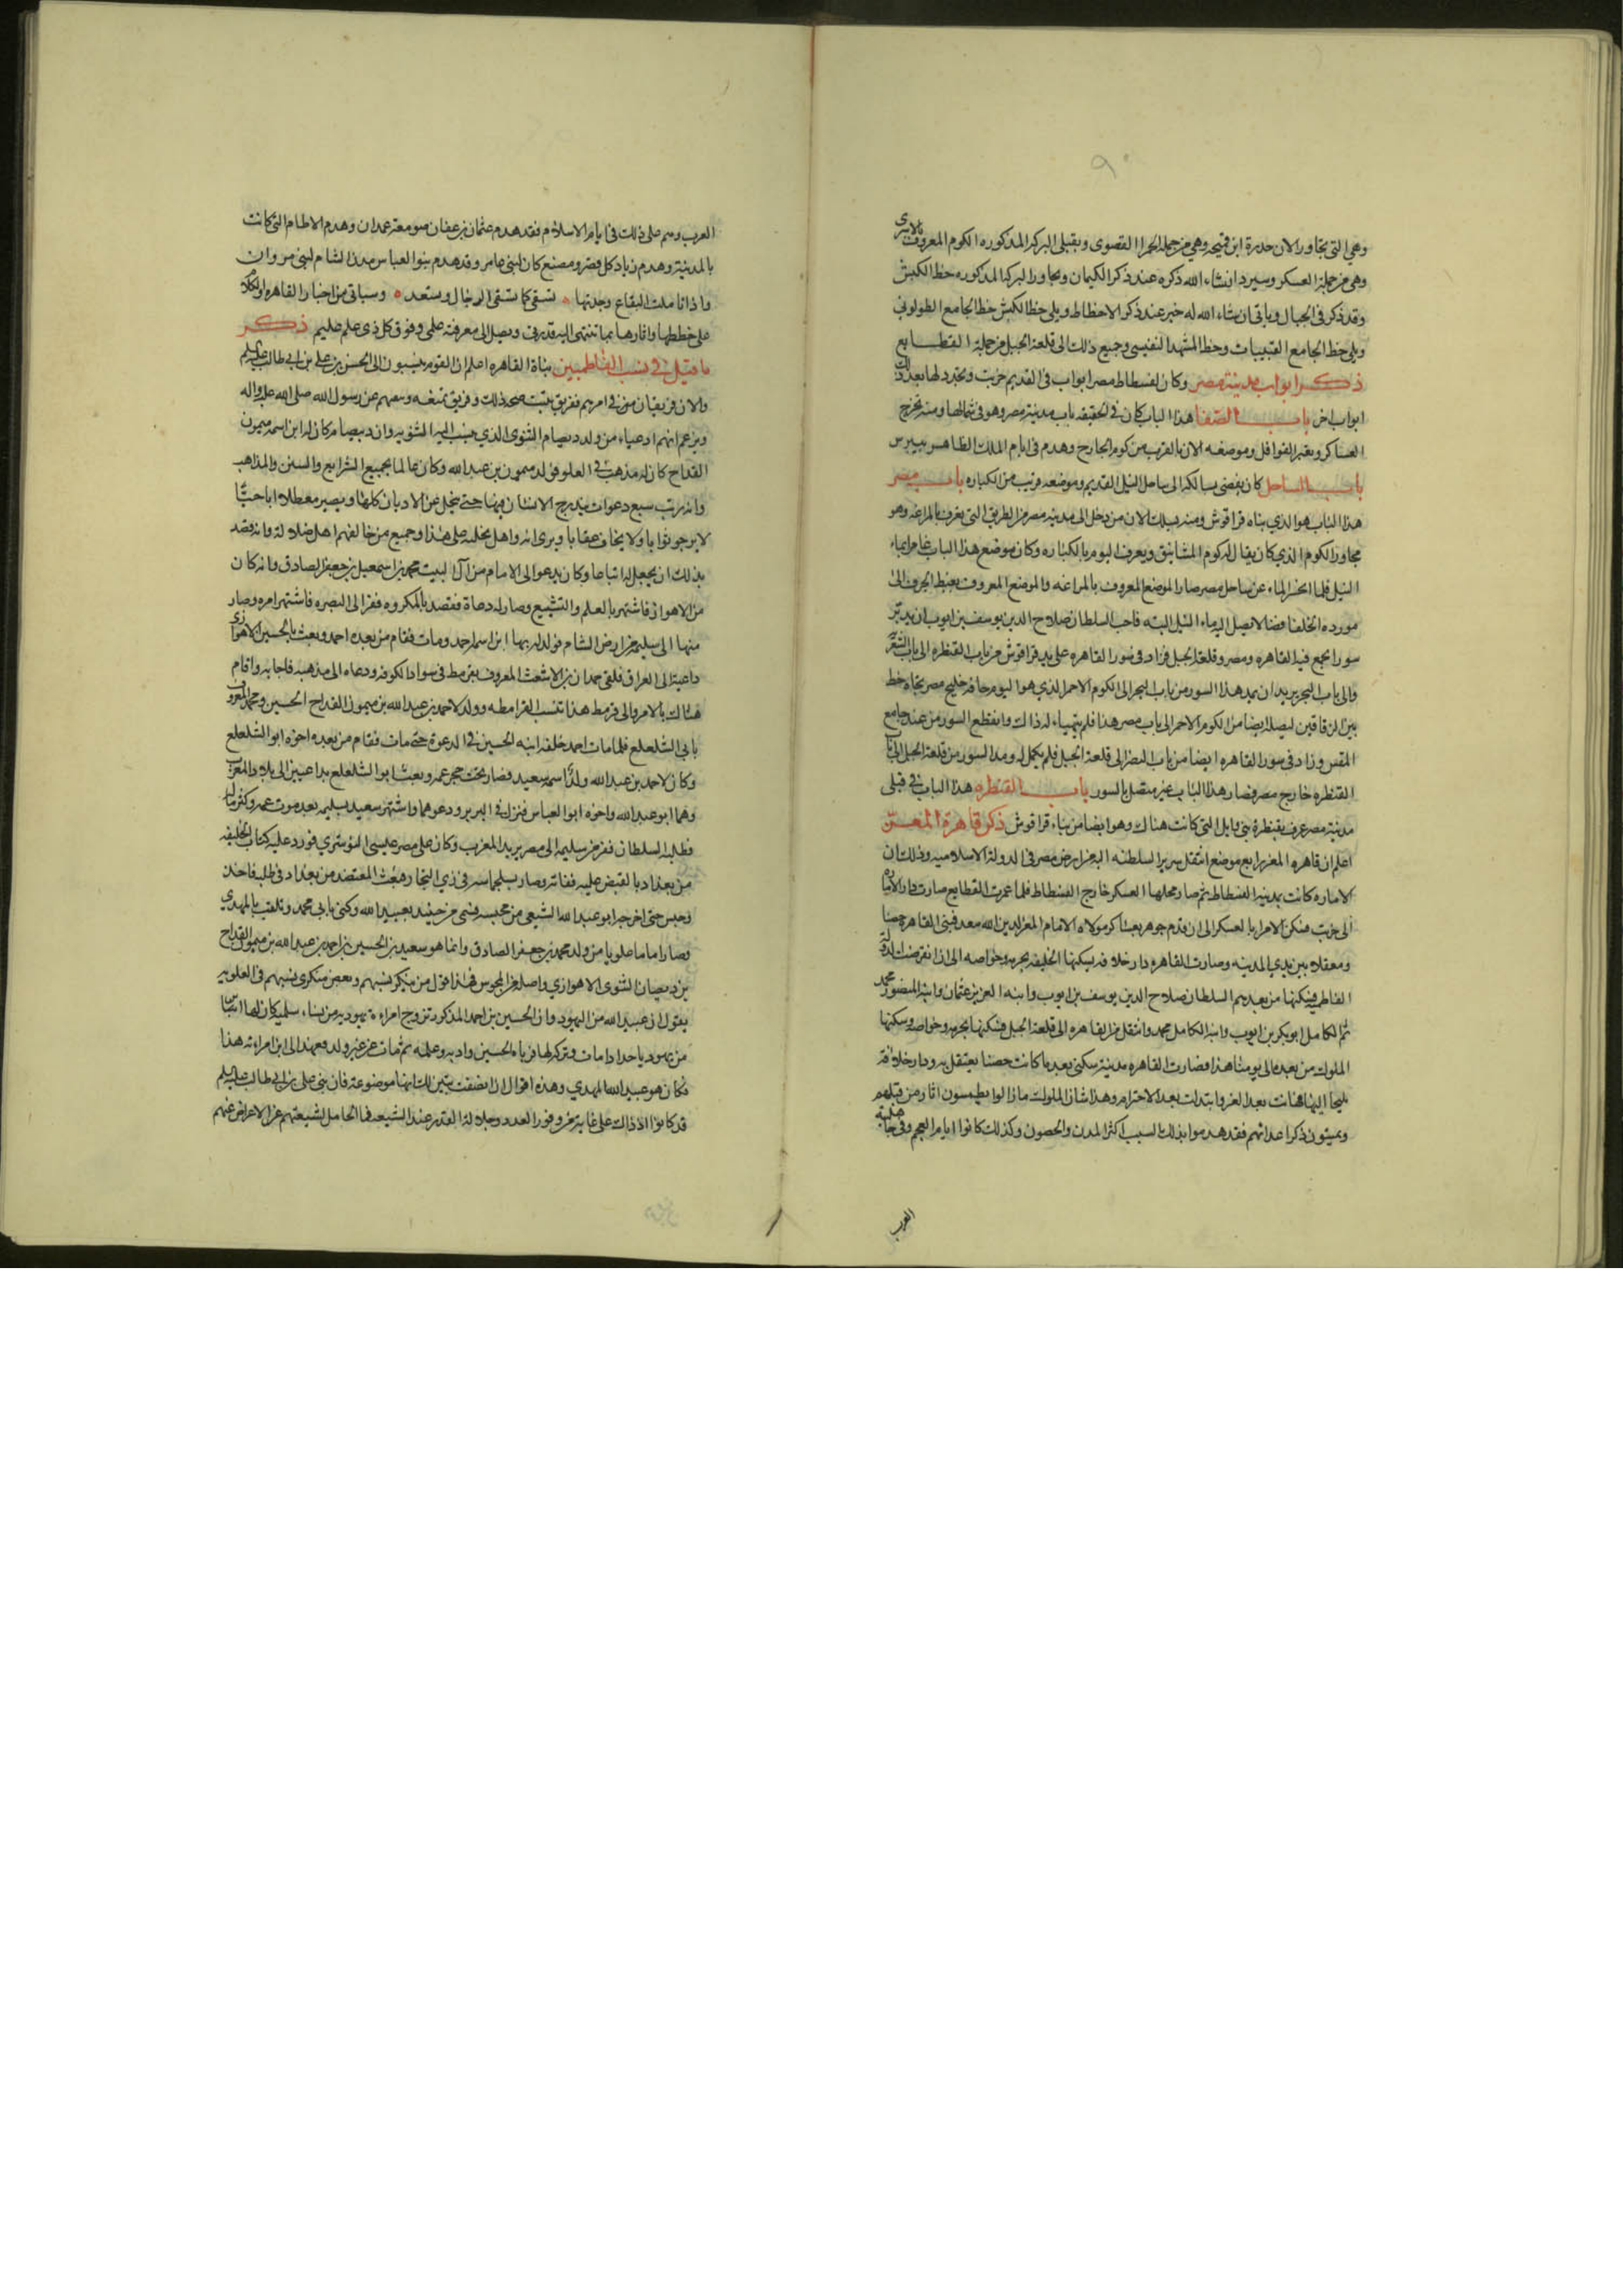 وهي التي تجاور الان حدرة ابن قميحه وهي من جملة الحمرا القصوى وبقبلي البركه المذكوره الكوم المعروف بالاسرى
وهي من جملة العسكر وسيرد ان شاء الله ذكره عند ذكر الكيمان ويجاور البركه المذكوره خط الكبش
وقد ذكر في الجبال وياتي ان شاء الله له خبر عند ذكر الاخطاط ويلي خط الكبش خط الجامع الطولوني
ويلي خط الجامع القبيبات وخط المشهد النفيسي وجميع ذلك الى قلعة الجبل من جملة القطايع
ذكر ابواب مدينة مصر وكان لفسطاط مصر ابواب في القديم خربت وتجدد لها بعد ذلك
ابواب اخر باب الصفا هذا الباب كان في الحقيقه باب مدينة مصر وهو في شمالها ومنه تخرج
العساكر وتعبر القوافل وموضعه الان بالقرب من كوم الجارح وهدم في ايام الملك الظاهر بيبرس
باب الساحل كان يفضي بسالكه الى ساحل النيل القديم وموضعه قريب من الكباره باب مصر
هذا الباب هو الذي بناه قراقوش ومنه يسلك الان من دخل الى مدينة مصر من الطريق التي تعرف بالمراغه وهو
مجاور الكوم الذي كان يقال له كوم المشانيق ويعرف اليوم بالكباره وكان موضع هذا الباب غامرا بماء
النيل فلما انحسر الماء عن ساحل مصر صار الموضع المعروف بالمراغه والموضع المعروف بغيط الجرف الى
مورده الخلفا فضا لا يصل اليه ماء النيل البته فاحب السلطان صلاح الدين يوسف بن ايوب ان يدير
سورا يجمع فيه القاهره ومصر وقلعة الجبل فزاد في سور القاهره على يد قراقوش من باب القنطره الى باب الشعريه
والى باب البحر يريد ان يمد هذا السور من باب البحر الى الكوم الاحمر الذي هو اليوم حافة خليج مصر تجاه خط
بين الزقاقين ليصله ايضا من الكوم الاحمر الى باب مصر هذا فلم يتهياء له ذالك وانقطع السور من عند جامع
المقس وزاد في سور القاهره ايضا من باب النصر الى قلعة الجبل فلم يكمل له ومد السور من قلعة الجبل الى باب
القنطره خارج مصر فصار هذا الباب غير متصل بالسور باب القنطره هذا الباب في قبلي
مدينة مصر عرف بقنطرة بني وايل التي كانت هناك وهو ايضا من بناء قراقوش ذكر قاهرة المعز
اعلم ان قاهره المعز رابع موضع انتقل سرير السلطنه اليه من ارض مصر في الدولة الاسلاميه وذلك ان
الاماره كانت بمدينة الفسطاط ثم صار محلها العسكر خارج الفسطاط فلما عمرت القطايع صارت دار الاماره
الى خربت فسكن الامرا بالعسكر الى ان قدم جوهر بعساكر مولاه الامام المعز لدين الله معد فبنى القاهره حصنا
ومعقلا بين يدي المدينه وصارت القاهره دار خلافه يسكنها الخليفه بحرمه وخواصه الى ان انقرضت الدوله
الفاطميه فسكنها من بعدهم السلطان صلاح الدين يوسف بن ايوب وابنه العزيز عثمان وابنه المنصور محمد
ثم الكامل ابو بكر بن ايوب وابنه الكامل محمد وانتقل من القاهره الى قلعة الجبل فسكنها بحرمه وخواصه وسكنها
الملوك من بعده الى يومنا هذا فصارت القاهره مدينة سكنى بعد ما كانت حصنا يعتقل به ودار خلافه
يلتجا اليها فهانت بعد العز وابتذلت بعد الاحترام وهذا شان الملوك ما زالوا يطمسون اثار من قبلهم
ويميتون ذكر اعدائهم فقد هدموا بذلك السبب اكثر المدن والحصون وكذلك كانوا ايام العجم وفي جاهلية
العرب
العرب وهم على ذلك في ايام الاسلام فقد هدم عثمان بن عفان صومعة غمدان وهدم الاطام التي كانت
بالمدينة وهدم زياد كل قصر ومصنع كان لابن عامر وقد هدم بنوا العباس مدن الشام لبني مروان
واذا تاملت البقاع وجدتها تشقى كما تشقى الرجال وتسعد وسياتي من اخبار القاهره والكلام
على خططها واثارها بما تنتهي اليه قدرتي ويصل الى معرفته علمي وفوق كل ذي علم عليم ذكر
ما قيل في نسب الفاطميين بناة القاهره اعلم ان القوم ينسبون الى الحسن بن علي بن ابي طالب عليه السلام
والان فريقان من في امرهم ففريق يثبت صحة ذلك وفريق يمنعه وينفيهم عن رسول الله صلى الله عليه واله
ويزعم انهم ادعياء من ولد ديصام الثنوي الذي ينسب اليه الثنويه وان ديصام كان له ابن اسمه ميمون
القداح كان له مذهب في الغلو فولد ميمون بن عبد الله وكان عالما بجميع الشرايع والسنن والمذاهب
وانه رتب سبع دعوات يتدرج الانسان فيها حتى ينحل عن الاديان كلها ويصير معطلا اباحيا
لا يرجو ثوابا ولا يخاف عقابا ويرى انه واهل نحلته على هذا وجميع من خالفهم اهل ضلالة وانه قصد
بذلك ان يجعل له اتباعا وكان يدعو الى الامام من آل البيت محمد بن اسمعيل بن جعفر الصادق وانه كان
من الاهواز فاشتهر بالعلم والتشيع وصار له دعاة فقصد بالمكروه ففر الى البصره فاشتهر امره وصار
منها الى سلميه من ارض الشام فولد له بها ابن اسمه احمد ومات فقام من بعده احمد وبعث بالحسين الاهوازي
داعية الى العراق فلقي حمدان بن الاشعث المعروف بقرمط في سواد الكوفه ودعاه الى مذهبه فاجابه واقام
هنالك بالامر والى قرمط هذا تنسب القرامطه وولد لاحمد بن عبد الله بن ميمون القداح الحسين ومحمد المعروف
بابي الشلعلع فلما مات احمد خلفه ابنه الحسين في الدعوة حتى مات فقام من بعده اخوه ابو الشلعلع
وكان لاحمد بن عبد الله ولد اسمه سعيد فصار تحت حجر عمه وبعث ابو الشلعلع بداعيين الى بلاد المغرب
وهما ابو عبد الله واخوه ابو العباس فنزلا في البربر ودعوهما واشتهر سعيد بسلميه بعد موت عمه وكثر ماله
فطلبه السلطان ففر من سلميه الى مصر يريد المغرب وكان على مصر عيسى النوشري فورد عليه كتاب الخليفه
من بغداد بالقبض عليه ففاته وصار بسلجماسه في زي التجار فبعث المعتضد من بغداد في طلبه فاخذ
وحبس حتى اخرجه ابو عبد الله الشيعي من محبسه فتسمى من حينئذ بعبيد الله وتكنى بابي محمد وتلقب بالمهدي
وصار اماما علويا من ولد محمد بن جعفر الصادق وانما هو سعيد بن الحسين بن احمد بن عبد الله بن ميمون القداح
بن ديصيان الثنوي الاهوازي واصله من المجوس فهذا قول من ينكر نسبهم وبعض منكري نسبهم في العلويه
يقول ان عبيد الله من اليهود وان الحسين بن احمد المذكور تزوج امراءة يهوديه من نساء سلميه كان لها ابن
من يهودي حداد مات وتركه لها فرباه الحسين وادبه وعلمه ثم مات عن غير ولد فعهد الى ابن امراءته هذا
فكان هو عبيد الله المهدي وهذه اقوال ان انصفت تبين لك انها موضوعة فان بني علي بن ابي طالب عليه السلام
قد كانوا اذ ذالك على غاية من وفور العدد وجلالة القدر عند الشيعه فما الحامل لشيعتهم عن الاعراض عنهم